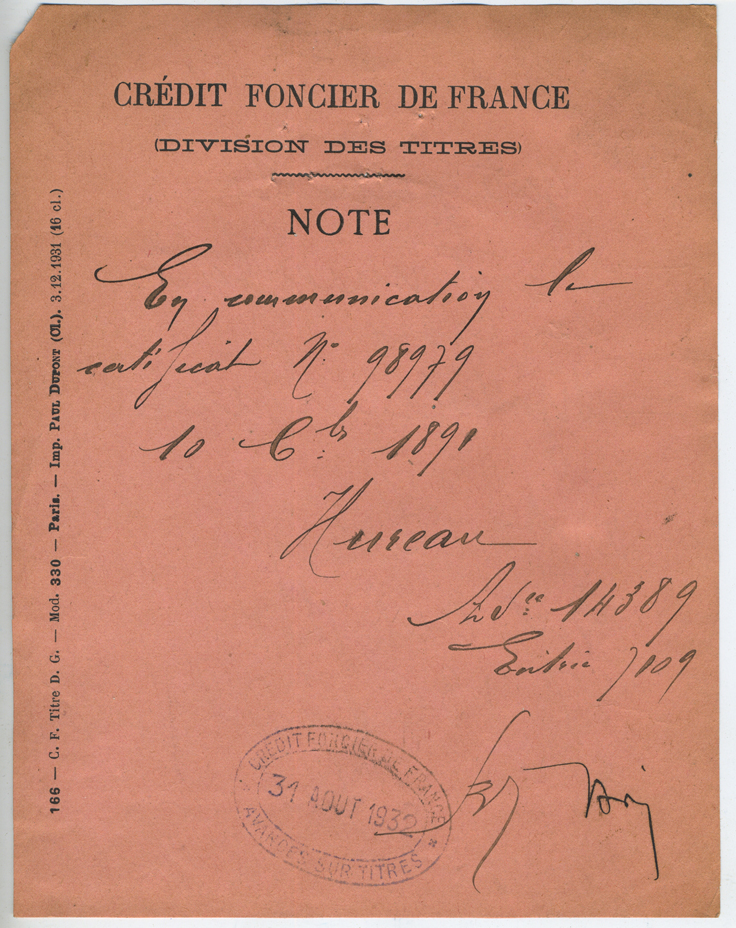 CRÉDIT FONCIER DE FRANCE
(DIVISION DES TITRES)
NOTE
En communication le
certificat N° 98979
10 C^bs 1891
Hureau
14389
Entrée 7109
CREDIT FONCIER DE FRANCE
31 AOUT 1932
AVANCES SUR TITRES
166 — C. F. Titre D. G. — Mod. 330 — Paris. — Imp. PAUL DUPONT (Cl.). 3.12.1931 (16 cl.)